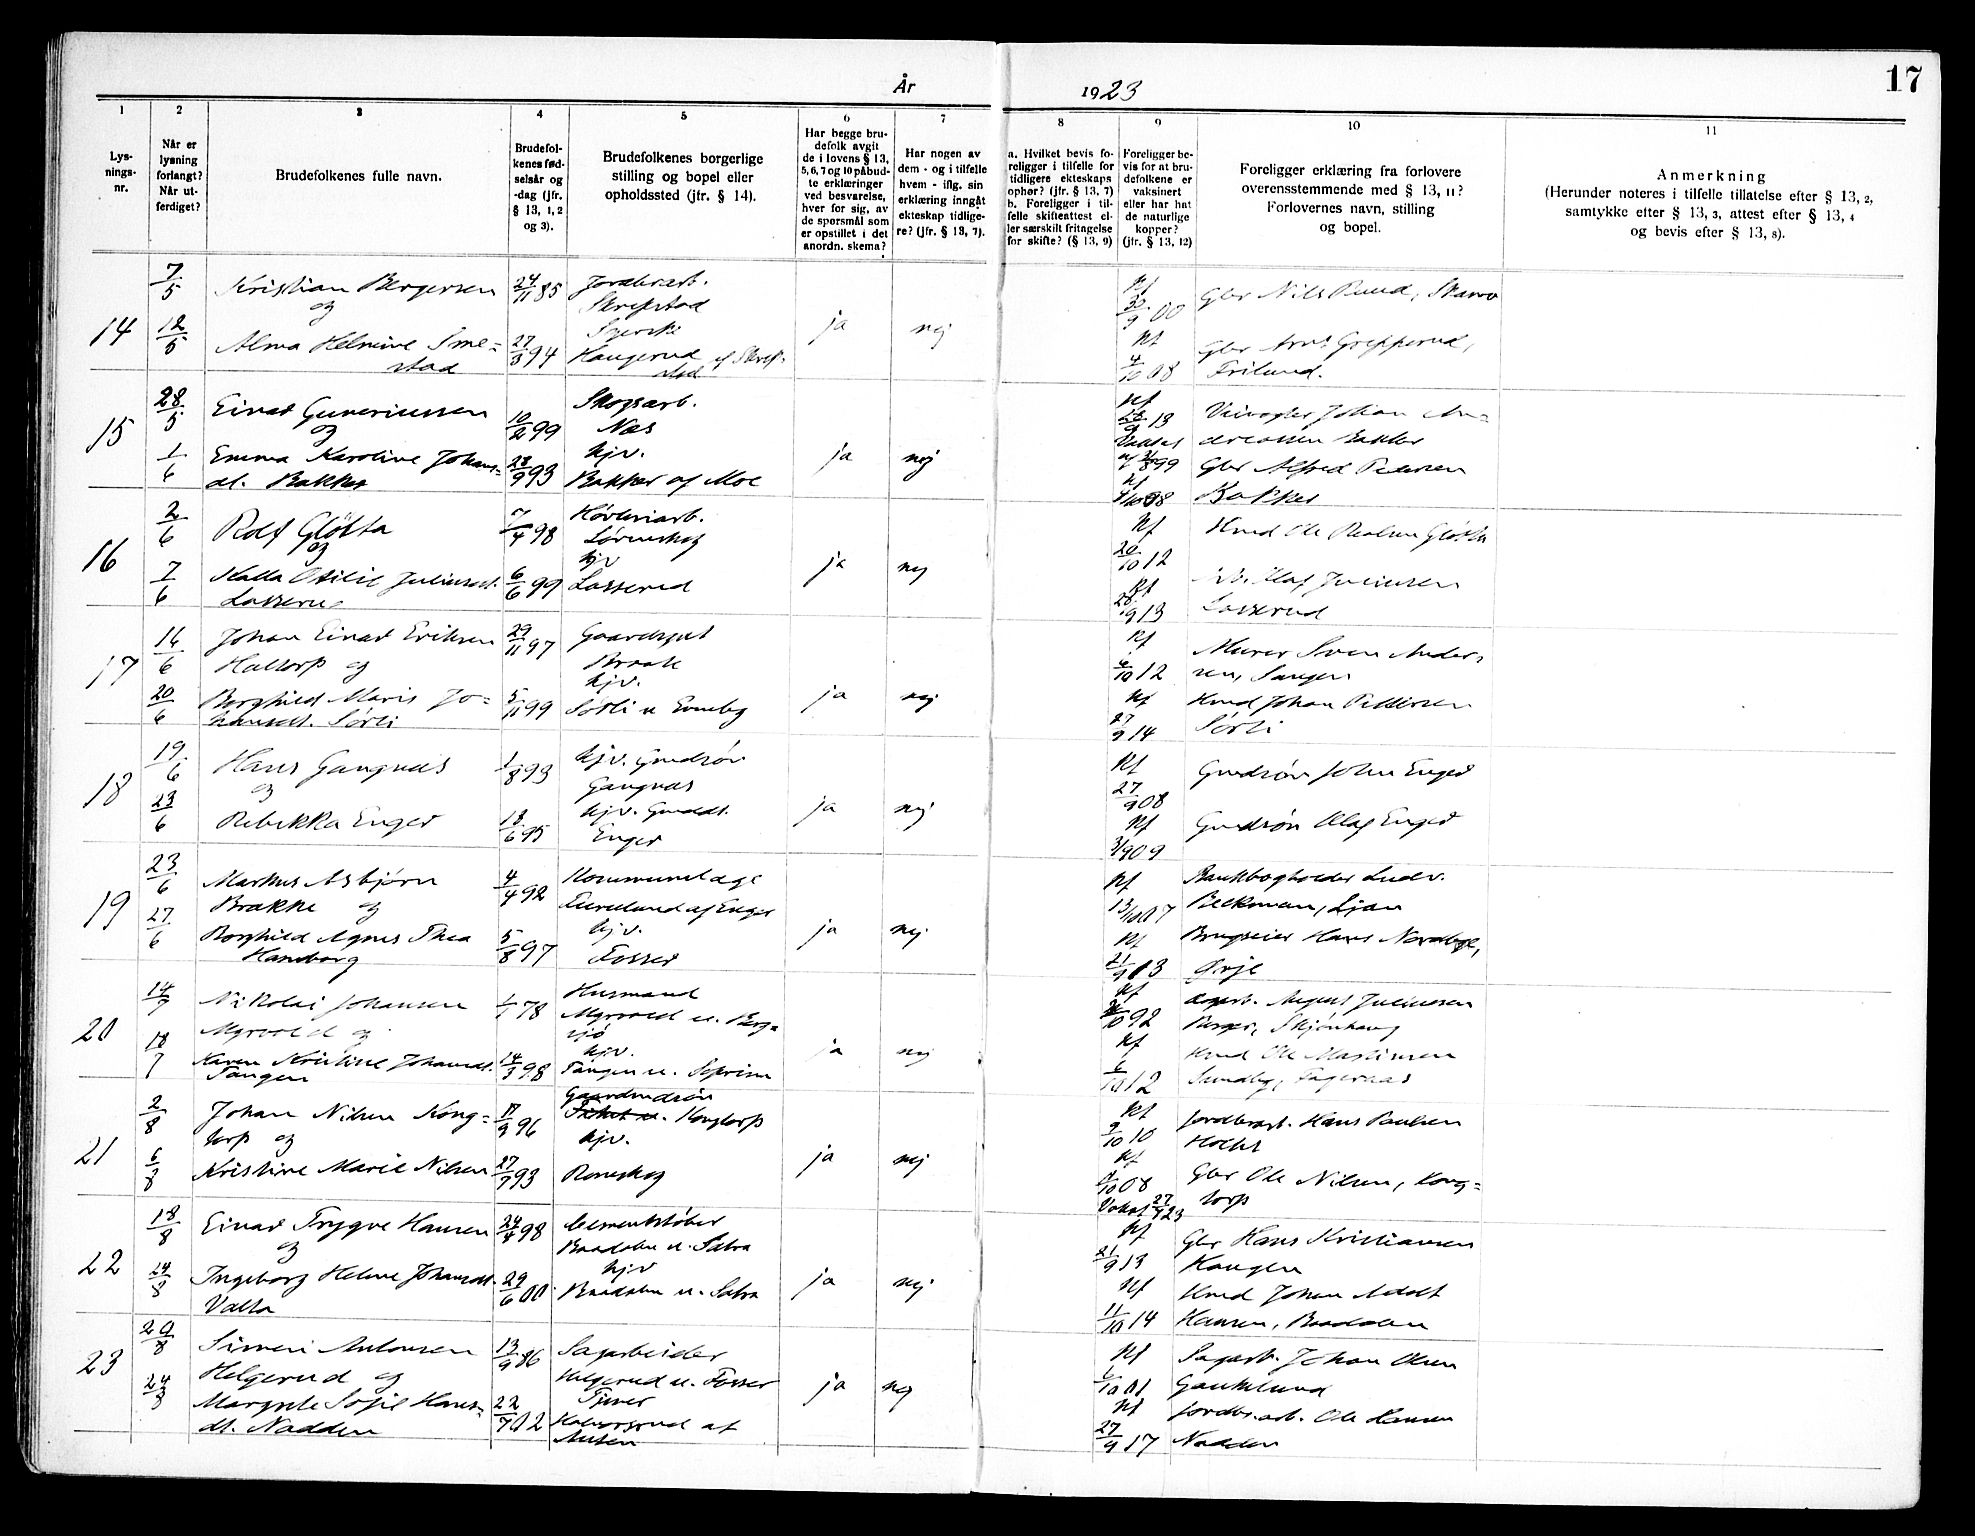 17
År 1923
1
Lysningsnr.
2
Når er lysning forlangt? Når utferdiget?
3
Brudefolkenes fulle navn.
4
Brudefolkenes fødselsår og -dag (jfr. § 13, 1, 2 og 3).
5
Brudefolkenes borgerlige stilling og bopel eller opholdssted (jfr. § 14).
6
Har begge brudefolk avgit de i lovens § 13, 5, 6, 7 og 10 påbudte erklæringer ved besvarelse, hver for sig, av de spørsmål som er opstillet i det anordn. skema?
7
Har nogen av dem - og i tilfelle hvem - iflg. sin erklæring inngåt ekteskap tidligere? (jfr. § 13, 7).
8
a. Hvilket bevis foreligger i tilfelle for tidligere ekteskaps ophør? (jfr. § 13, 7) b. Foreligger i tilfelle skifteattest eller særskilt fritagelse for skifte? (§ 13, 9)
9
Foreligger bevis for at brudefolkene er vaksinert eller har hat de naturlige kopper? (jfr. § 13, 12)
10
Foreligger erklæring fra forlovere overensstemmende med § 13, 11? Forlovernes navn, stilling og bopel.
11
Anmerkning
(Herunder noteres i tilfelle tillatelse efter § 13, 2, samtykke efter § 13, 3, attest efter § 13, 4 og bevis efter § 13, 8).
14
7/5 12/5
Kristian Bergersen
og
Alma Helmine Smestad
24/11 85
27/3 94
Jordbrarb.
Skrefstad
Haugerud
ja nej
Kf 30/9 00
Kf 4/10 08
Gbr Nils Ruud,
Gbr Arnt Grepperud,
Frilund.
15
28/5 1/6
Einar Guneriussen
og
Emma Karoline Johansdt. Bakker
10/2 99
28/9 93
Skogsarb.
Næs
hjv.
Bakker af Moe
ja nej
Kf 28/9 13
Kf 4/10 08
Veivogter Johan Andreassen Bakker
Gbr Alfred Petersen
Bakker
16
2/6 7/6
Rolf Glötta
og
Otilie Juliusdt.
Losserud
7/4 98
6/6 99
Høvleriarb.
Lörenskog
hjv
Losserud
ja nej
Kf 20/10 12
Kf 28/9 13
Hmd Ole Paulsen Glötta
Olaf Juliussen
Losserud
17
16/6 20/6
Johan Einar Eriksen
Haltorp og
Borghild Marie Johansdt. Sørli
29/11 97
5/11 99
Gaardsgut
Braate
hjv.
Sørli u Enneby
ja nej
Kf 6/10 12
Kf 27/9 14
Murer Sven Andersen, Tangen
Hmd Johan Pettersen
Sørli
18
19/6 23/6
Hans Gangnæs
og
Rebekka Enger
1/8 93
18/6 95
hjv. Grndsøn
Gangnæs
hjv. Grnddt.
Enger
ja nej
Kf 27/9 08
Kf 3/9 09
Grndsøn John Enger
Grndsøn Olaf Enger
19
23/6 27/6
Markus Asbjørn
Brække og
Borghild Agnes Thea
Hamborg
4/4 92
5/8 97
Kommunelæge
af Enger
hjv.
Fosser
ja nej
Kf 13/10 07
Kf 21/9 13
Bankbogholder Ludv.
Beckman, Ljan
Brugseier Hans Nordbye,
Ørje
20
14/7 18/7
Nikolai Johansen
Myrvold og
Karen Kristine Johansdt.
Tangen
1/1 78
14/3 98
Husmand
Myrvold u. Bergsjö
hjv.
Tangen u.
ja nej
Kf 10 92
Kf 6/10 12
August Juliussen
Skjønhaug
Hmd Ole Martinsen
Sundby, Fagernæs
21
2/8 6/8
Johan Nilsen Kongtorp og
Kristine Marie Nilsen
17/9 96
27/7 93
Gaardmdsøn
Kongtorp
hjv.
Romskog
ja nej
Kf 9/10 10
Kf 10 08
27/7 23
Jordbrarb. Hans Paulsen
Holtet
Gbr Ole Nilsen, Kongtorp
22
18/8 24/8
Einar Trygve Hansen
og
Ingeborg Helene Johansdt.
Valta
24/4 98
29/6 00.
Cementstøber
Baadsbu u. Sætra
hjv
Baadsbu u. Sætra
ja nej
Kf 21/9 13
Kf 11/10 14
Gbr Hans Kristiansen
Haugen
Hmd Johan Adolf
Hansen, Baadsbu
23
20/8 24/8
Simen Antonsen
Helgerud og
Margrete Sofie Hansdt. Nadden
13/9 86
22/7 02
Sagarbeider
Helgerud u. Fosser
Tjener
Halvorsrud af
ja nej
Kf 6/10 01
Kf 27/9 17
Sagarb. Johan Olsen
Gauteslund
Jordbr.arb. Ole Hansen
Nadden